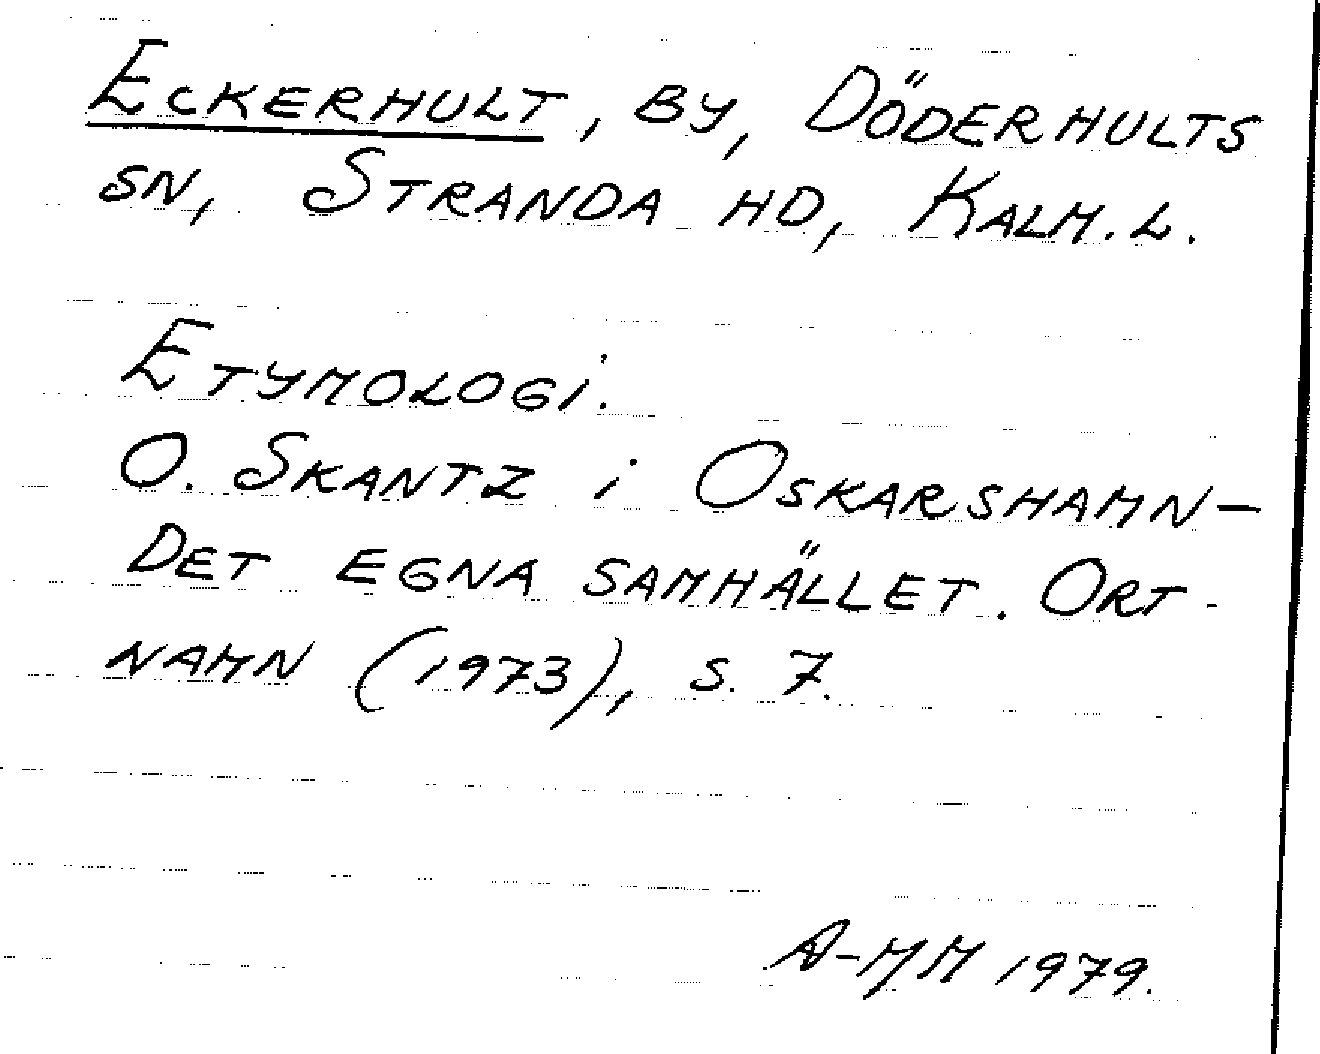 ECKERHULT, BY, DÖDERHULTS
SN, STRANDA HD, KALM. L.
ETYMOLOGI.
O. SKANTZ i OSKARSHAMN-
DET EGNA SAMHÄLLET. ORT-
NAMN (1973), S. 7.
A-MM 1979.